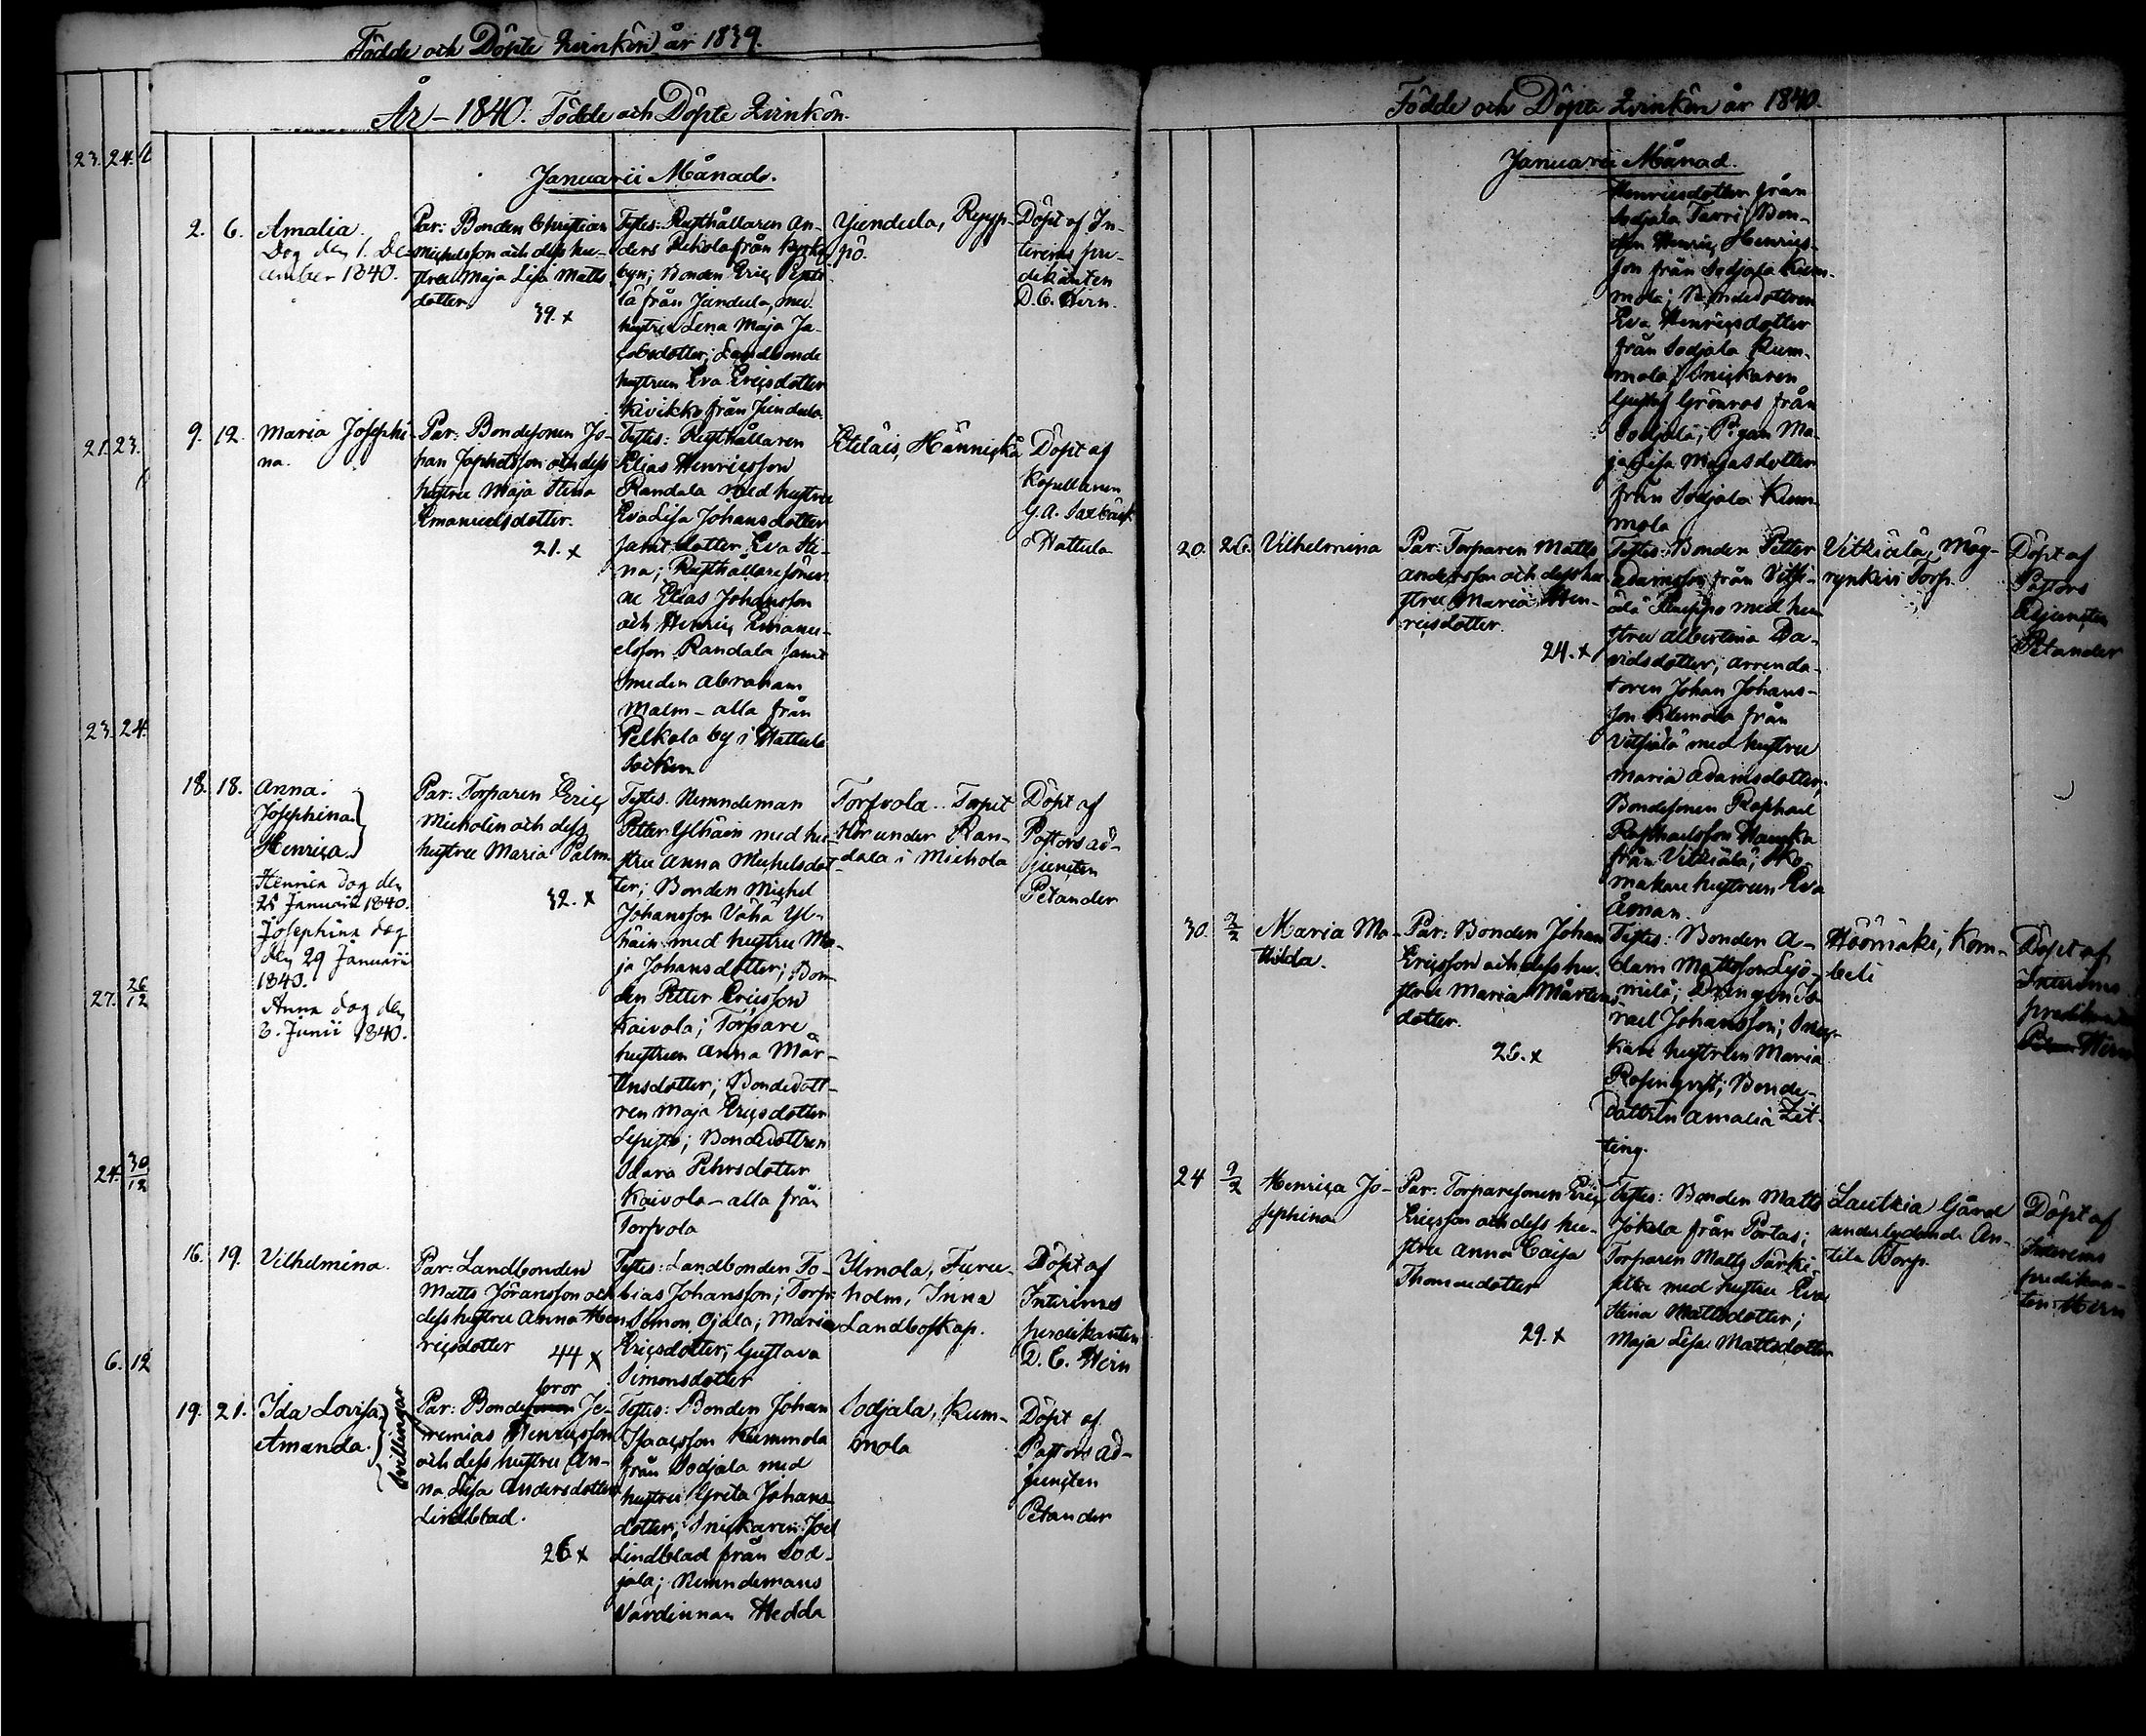 Födde och Döpte Qvinkön år 1839.
23. 24.
21. 23.
23. 24.
27. 26/12
24. 30/12
6. 12
År - 1840. Födde och Döpte Qvinkön.
Januarii Månad.
2. 6.
Amalia.
Dog den 1. De-
cember 1840.
Par: Bonden Christian
Michelsson och dess hu-
stru Maja Lisa Matts
dotter
39. x
Testes: Rusthållaren An-
ders Pekola från Kyrko
byn; Bonden Eric
lä från Jundula, med
hustru Lena Maja Ja-
cobsdotter; Landbonde
hustrun Eva Ericsdotter
Kivikko från Jundula
Yundula, Reyp-
pö.
Döpt af In-
terims pre-
dikanten
D. C. Hirn.
9. 12.
Maria Josephi-
na.
Par: Bondesonen Jo-
han Japhetsson och dess
hustru Maja Stina
Emanuelsdotter.
21. x
Testes: Rusthållaren
Elias Henricsson
Randala med hustru
Eva Lisa Johansdotter
samt dotter Eva Sti-
na; Rusthållaresöner-
ne Elias Johansson
och Henric Emanu-
elsson Randala samt
Smeden Abraham
Malm - alla från
Pelkola by i Hattula
Socken
Etelais, Hännickä
Döpt af
Kapellanen
G. A.
i Hattula
18. 18.
Anna.
Josephina.
Henrica.
Henrica dog den
25 Januarii 1840.
Josephina dog
den 29 Januarii
1840.
Anna dog den
3. Junii 1840.
Par: Torparen Eric
Mickolin och dess
hustru Maria Palm.
32. x
Testes. Nemndeman
Petter Ylhäin med hu-
stru Anna Michelsdot-
ter; Bonden Michel
Johansson Vähä Yl-
häin med hustru Ma-
ja Johansdotter; Bon-
den Petter Ericsson
Kaivola; Torpare
hustrun Anna Mår-
tensdotter; Bondedott-
ren Maja Ericsdotter
Lepistö; Bondedottren
Sara Pehrsdotter
Kaivola - alla från
Torvola
Torfvola. Torpet
Hör under Ran-
dala i Mickola
Döpt af
Pastorsad-
juncten
Petander
16. 19.
Vilhelmina.
Par: Landbonden
Matts Jöransson och
dess hustru Anna Hen-
ricsdotter
44 x
Testes: Landbonden To-
bias Johansson; Torp:
Simon Ojala; Maria
Ericsdotter; Gustava
Simonsdotter
Ylmola, Furu-
holm, Inna
Landboskap.
Döpt af
Interims
predikanten
D. C. Hirn
19. 21.
Ida Lovisa.
Amanda.
tvillingar
bror
Par: Bondesonen Je-
remias Henricsson
och dess hustru An-
na Lisa Andersdotter
Lindblad.
26 x
Testes: Bonden Johan
Isaacsson Kummola
från Sodjala med
hustru Greta Johans
dotter; Snickaren Joel
Lindblad från Sod-
jala; Nemndemans
Värdinnan Hedda
Sodjala, Kum-
mola
Döpt af
Pastors ad-
juncten
Petander
Födde och Döpta Qvinkön år 1840.
Januarii Månad.
Henricsdotter från
Sodjala Tarri; Bon-
den Henric Henrics-
son från Sodjala Kum-
mola; Bondedottren
Eva Henricsdotter
från Sodjala Kum-
mola; Snickaren
Gustaf Grönros från
Sodjala; Pigan Ma-
ja Lisa
från Sodjala Kum-
mola
20. 26.
Vilhelmina
Par: Torparen Matts
Andersson och dess hu-
stru Maria Hen-
ricsdotter.
24. x
Testes: Bonden Petter
Adamsson från Vitsi-
älä med hu-
stru Albertina Da-
vidsdotter; Arrenda-
toren Johan Johans-
son från
Vitsiälä med hustru
Maria Adamsdotter;
Bondesonen Raphael
Raphaelsson
från Vitsiälä; Sko-
makare hustrun Eva
Åman.
Vitsiälä,
Torp.
Döpt af
Pastors
Adjuncten
Petander
30. 2/2
Maria Ma-
thilda.
Par: Bonden Johan
Ericsson och dess hu-
stru Maria Mårtens-
dotter.
26. x
Testes: Bonden A-
dam Mattsson
Drengen Is-
rael Johansson; Snic-
kare hustrun Maria
Rosenqvist; Bonde-
dottren Amalia Zit-
ting.
Höömäki, Kom-
beli
Döpt af
Interims
predikanten
Hirn
24 9/2
Henrica Jo-
sephina
Par: Torparesonen Eric
Ericsson och dess hu-
stru Anna Caisa
Thomasdotter
29. x
Testes: Bonden Matts
Jokela från Portas;
Torparen Matts Särki-
med hustru Eva
Stina Mattsdotter;
Maja Lisa Mattsdotter
Lautsia Gård
underlydande An-
tila Torp.
Döpt af
Interims
predikan-
ten Hirn